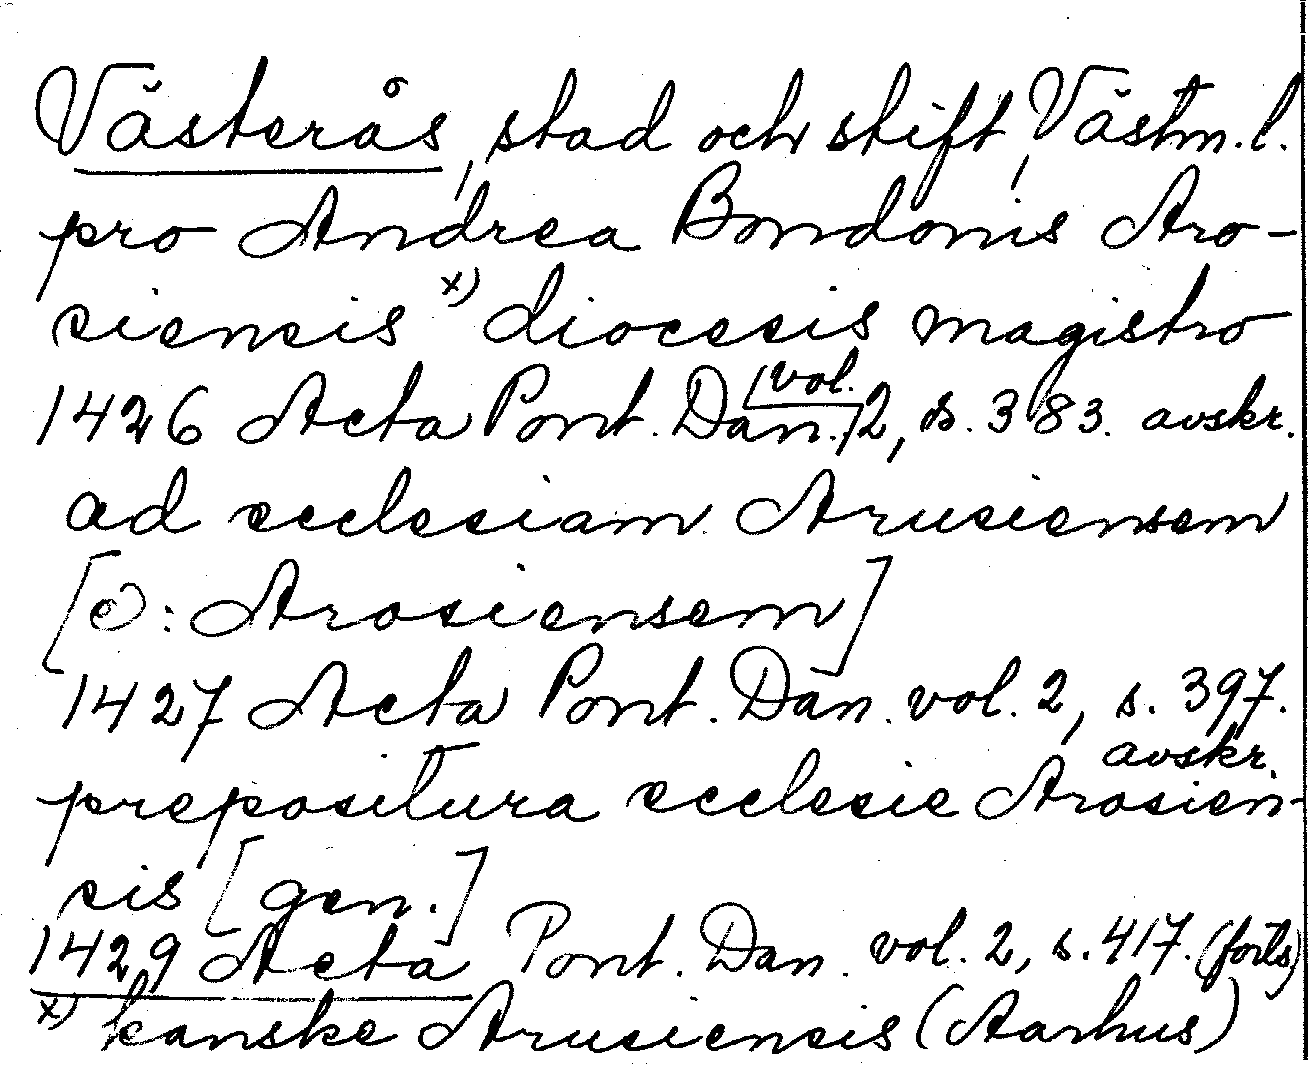 Västerås, stad och stift, Västm. l.
pro Andrea Bondonis Aro-
siensis x) diocesis magistro
1426 Acta Pont. Dan. vol. 2, s. 383. avskr.
ad ecclesiam Arusiensem
[ɔ: Arosiensem]
1427 Acta Pont. Dan. vol. 2, s. 397.
avskr.
prepositura ecclesie Arosien-
sis [gen.]
1429 Acta Pont. Dan. vol. 2, s. 417. (forts)
x) kanske Arusiensis (Aarhus)